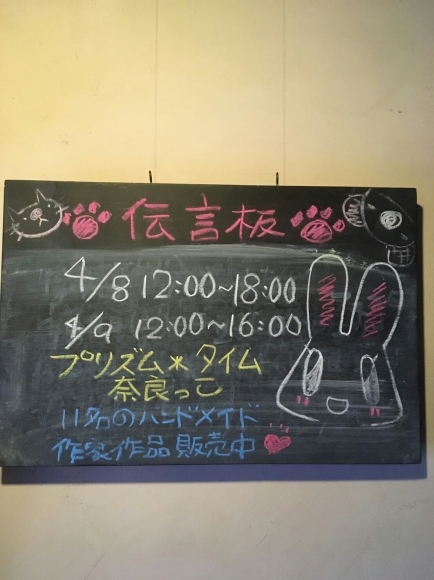 伝言板
4/8 12:00~18:00
4/9 12:00~16:00
プリズム*タイム
奈良っこ
11名のハンドメイド
作家作品販売中